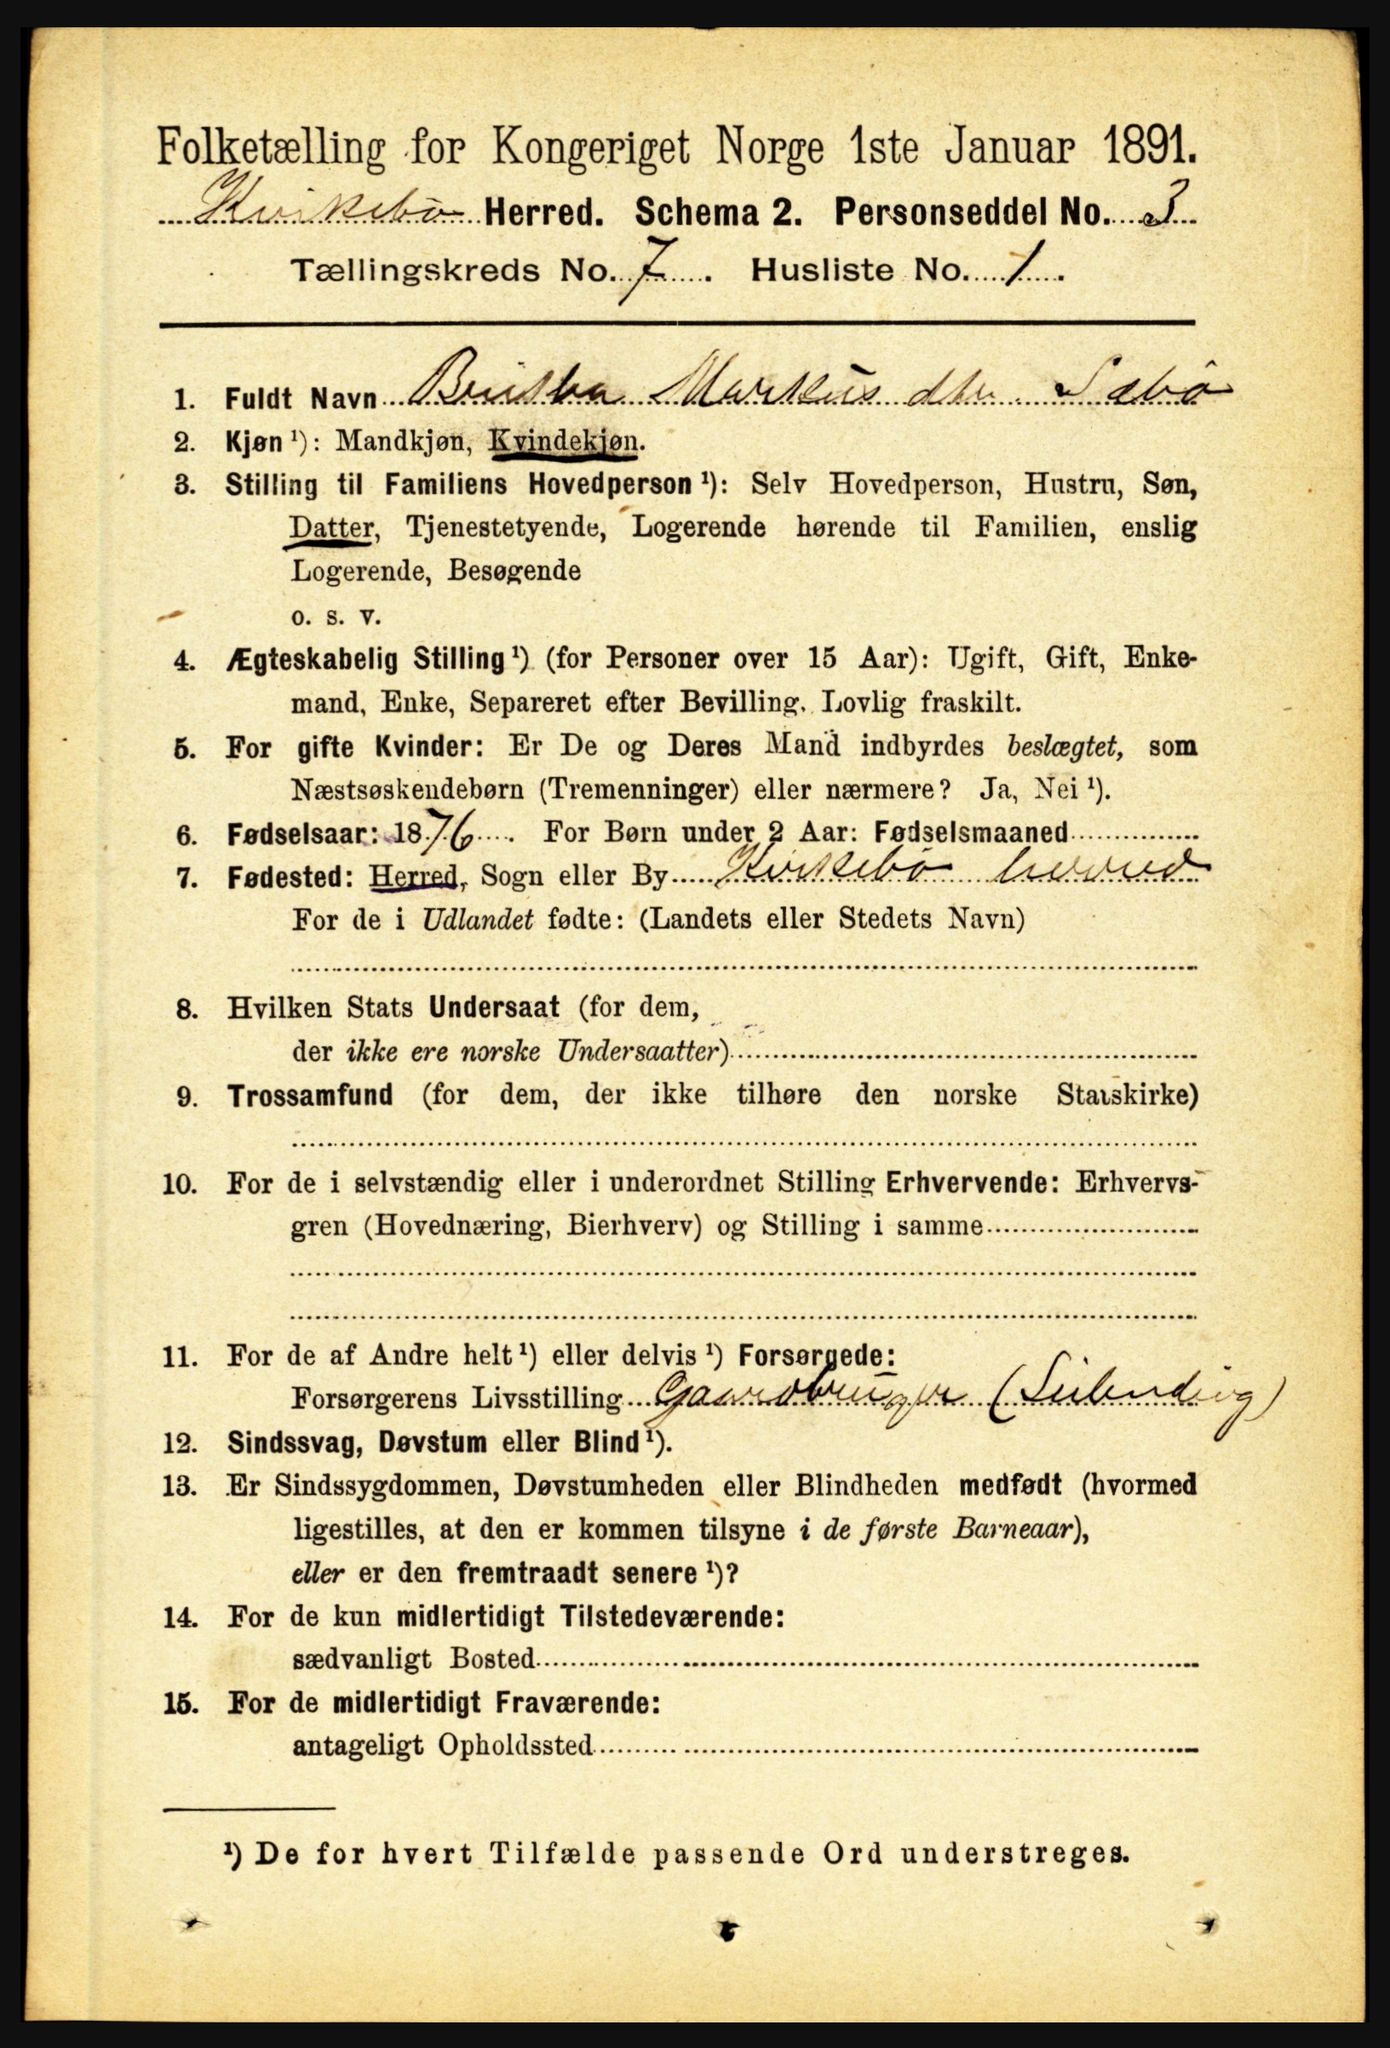 Folketælling for Kongeriget Norge 1ste Januar 1891.
Kirkebø Herred. Schema 2. Personseddel No. 3
Tællingskreds No. 7. Husliste No. 1.
1. Fuldt Navn Markus dtr. Sæbø
2. Kjøn ¹): Mandkjøn, Kvindekjøn.
3. Stilling til Familiens Hovedperson ¹): Selv Hovedperson, Hustru, Søn,
Datter, Tjenestetyende, Logerende hørende til Familien, enslig
Logerende, Besøgende
o. s. v.
4. Ægteskabelig Stilling ¹) (for Personer over 15 Aar): Ugift, Gift, Enke-
mand, Enke, Separeret efter Bevilling. Lovlig fraskilt.
5. For gifte Kvinder: Er De og Deres Mand indbyrdes beslægtet, som
Næstsøskendebørn (Tremenninger) eller nærmere? Ja, Nei ¹).
6. Fødselsaar: 1876. For Børn under 2 Aar: Fødselsmaaned
7. Fødested: Herred, Sogn eller By Kirkebø herred
For de i Udlandet fødte: (Landets eller Stedets Navn)
8. Hvilken Stats Undersaat (for dem,
der ikke ere norske Undersaatter)
9. Trossamfund (for dem, der ikke tilhøre den norske Statskirke)
10. For de i selvstændig eller i underordnet Stilling Erhvervende: Erhvervs-
gren (Hovednæring, Bierhverv) og Stilling i samme
11. For de af Andre helt ¹) eller delvis ¹) Forsørgede:
Forsørgerens Livsstilling Gaardbruger (Leilending)
12. Sindssvag, Døvstum eller Blind ¹).
13. Er Sindssygdommen, Døvstumheden eller Blindheden medfødt (hvormed
ligestilles, at den er kommen tilsyne i de første Barneaar),
eller er den fremtraadt senere ¹)?
14. For de kun midlertidigt Tilstedeværende:
sædvanligt Bosted
15. For de midlertidigt Fraværende:
antageligt Opholdssted
¹) De for hvert Tilfælde passende Ord understreges.